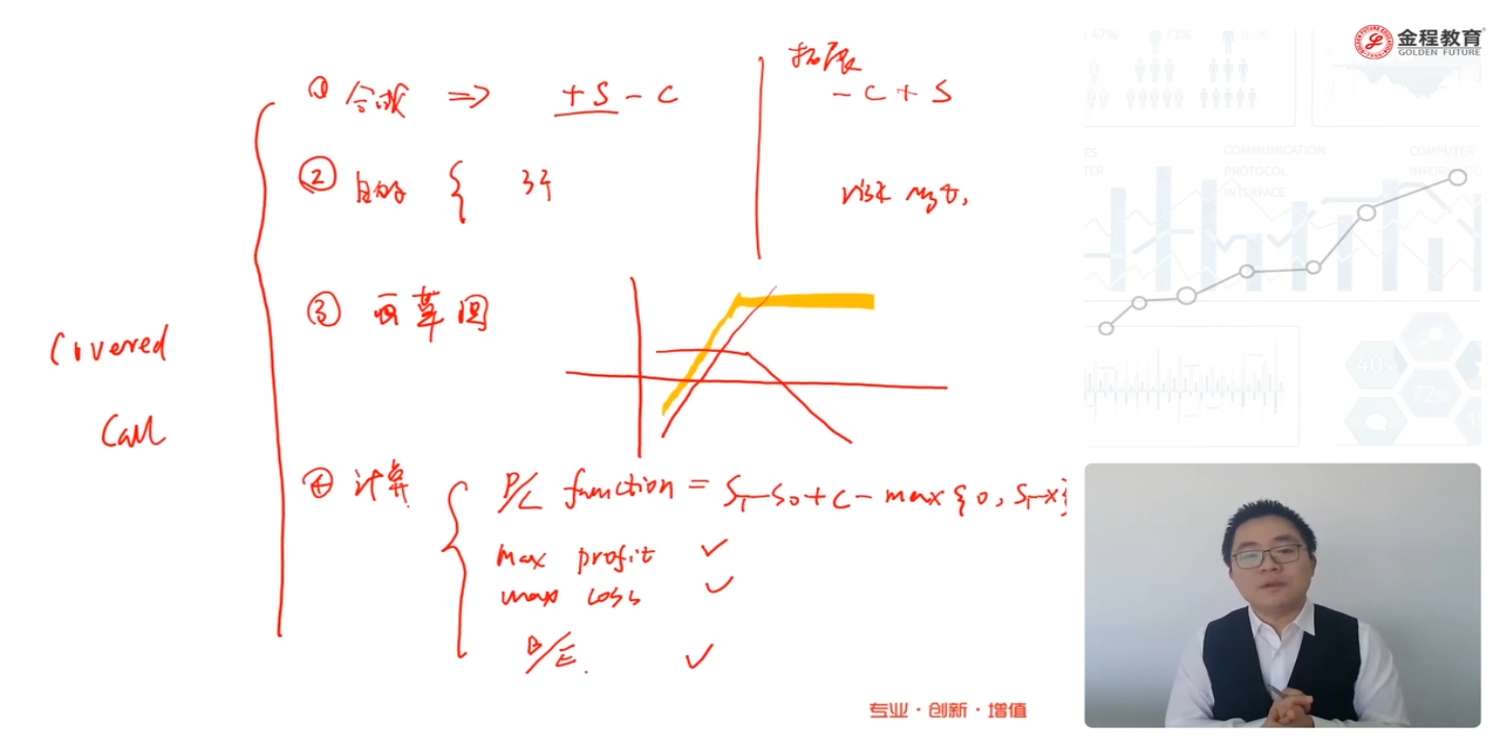 金程教育
GOLDEN FUTURE
Covered
Call
① 合成 ⇒ +S - C
拓展
- C + S
② 目的 { 3个
risk mgt.
③ 画草图
④ 计算
P/L function = S_T - S_0 + C - max{0, S_T - X}
max profit ✓
max loss ✓
B/E. ✓
COMMUNICATION
PROTOCOL
INTERFACE
COMPUTER
40%
专业·创新·增值